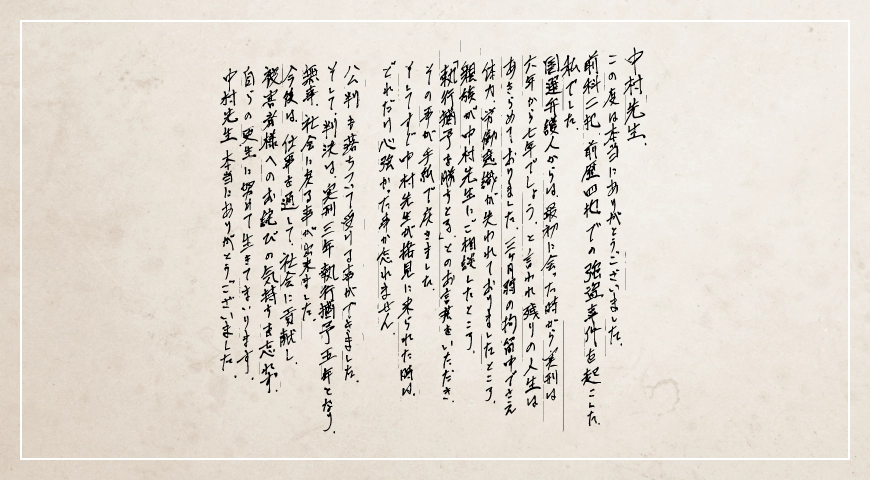 中村先生、
この度は本当にありがとうございました。
前科二犯、前歴四犯での強盗事件を起こした
私でした。
国選弁護人からは、最初に会った時から、実刑は
六年から七年でしょう。と言われ残りの人生は
あきらめておりました。三ヶ月時の拘留中でさえ
体力、労働意識が失われておりましたところ、
親族が中村先生にご相談したところ、
「執行猶予を勝ちとる」とのお言葉をいただき、
その事が手紙で戻きました。
そしてすぐ中村先生が接見に来られた時は、
どれだけ心強かった事か忘れません。
公判も落ちついて受ける事ができました。
そして判決は、実刑三年執行猶予五年となり、
無事、社会に戻る事が出来ました。
今後は、仕事を通して、社会に貢献し、
被害者様へのお詫びの気持ちを忘れず、
自らの更生に努めて生きてまいります。
中村先生、本当にありがとうございました。